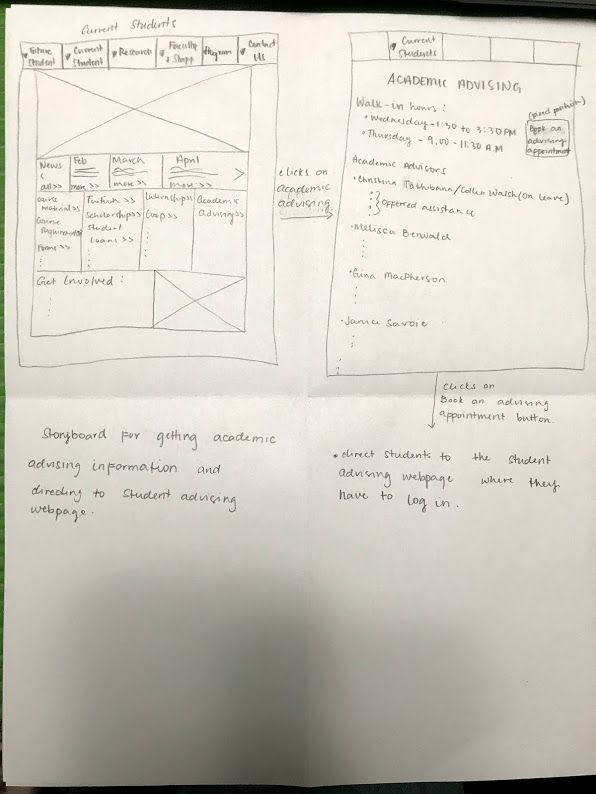 Current Students
Future Student
Current Student
Research
Faculty & Stapp
Program
Contact Us
News &
all>>
Feb
more >>
March
more >>
April
more >>
course material >>
Course
Forms >>
Tuition >>
Scholarships >>
Student
Loans >>
Internships
Coop >>
Academic
Advising >>
Get Involved :
clicks on
academic
advising
Current
Students
ACADEMIC ADVISING
Walk-in hours :
• Wednesday - 1:30 to 3:30 PM
• Thursday - 9:00 - 11:30 A.M
Book an
advising
appointment
Academic Advisors
• Christina /Collen Walsh (on leave)
offered assistance
• Melissa Berwald
• Gina MacPherson
• Janice Savoie
clicks on
Book an advising
appointment button.
Storyboard for getting academic
advising information and
directing to student advising
webpage.
• direct students to the student
advising webpage where they
have to log in.